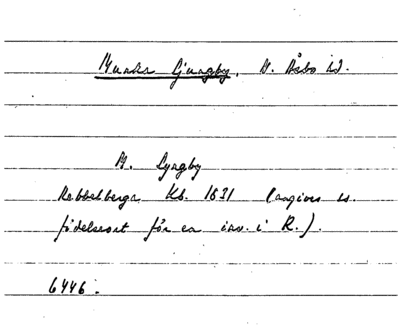 Munka Ljungby, N. Åsbo hd.
M. Lyngby
Rabbelberga Kb. 1631 (angives ss.
födelseort för en inv. i R.).
6446.